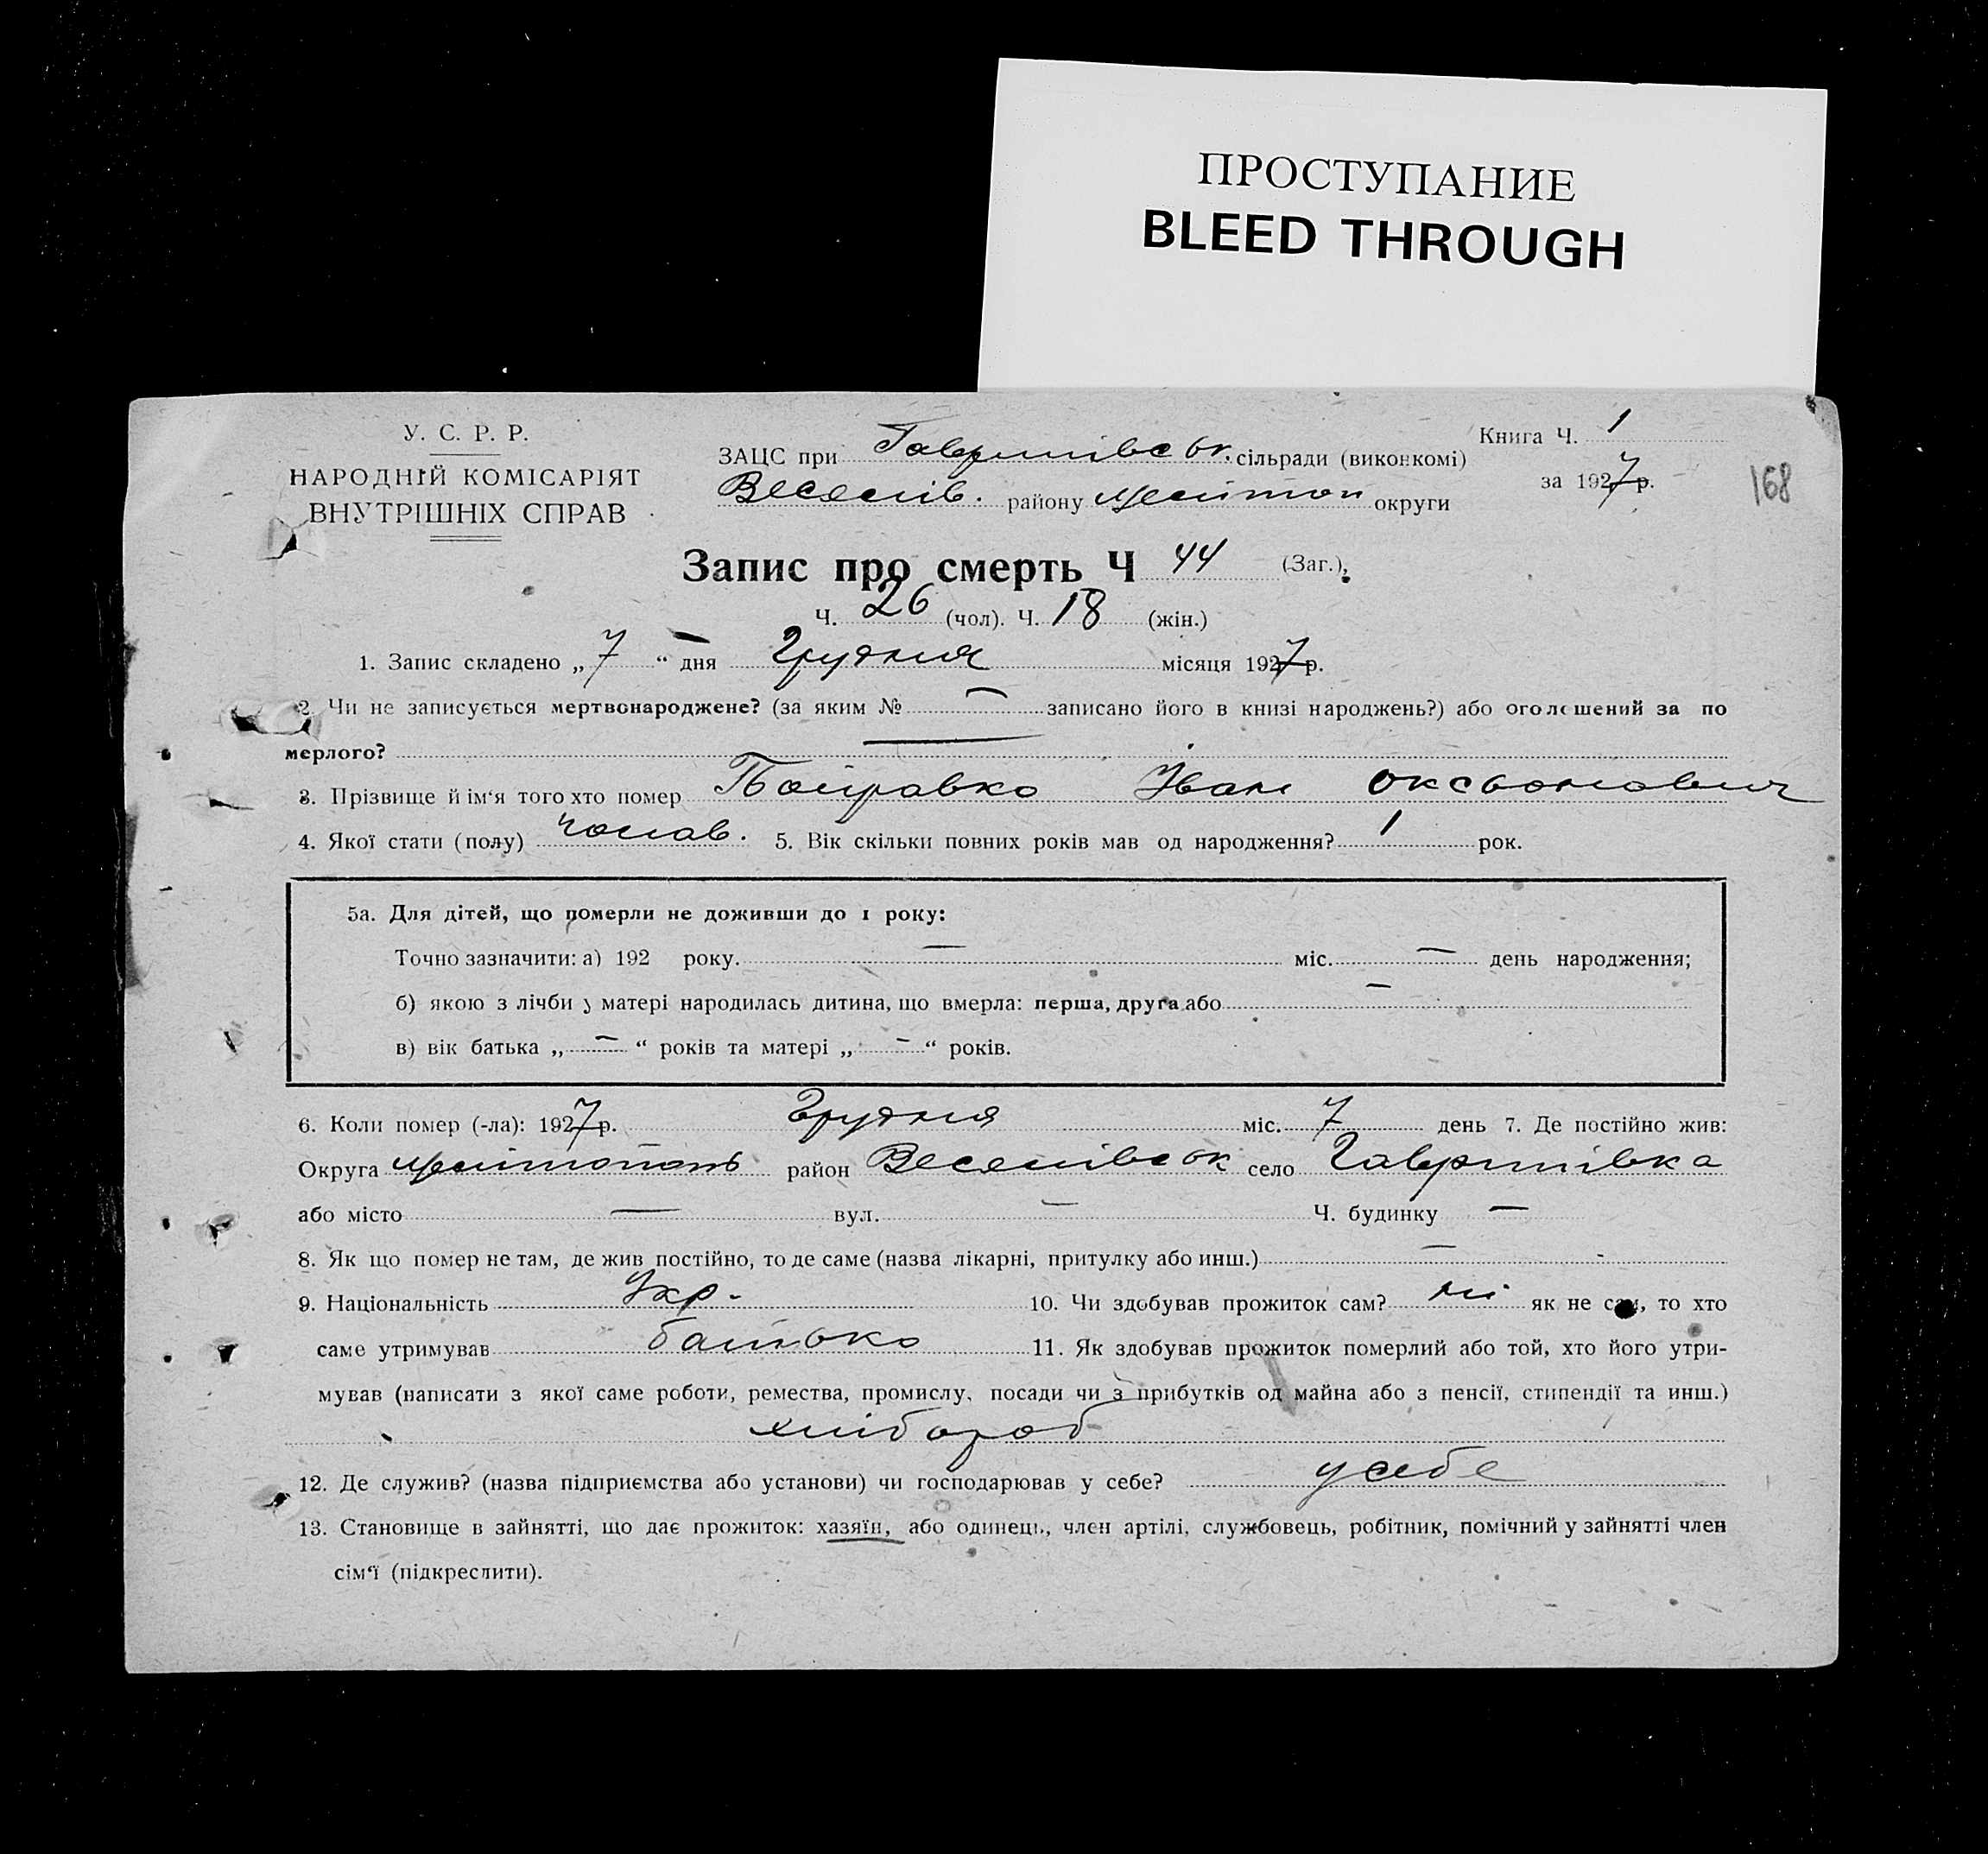 ПРОСТУПАНИЕ
BLEED THROUGH
У. С. Р. Р.
НАРОДНІЙ КОМІСАРІЯТ
ВНУТРІШНІХ СПРАВ
ЗАЦС при Гаврилівськ. сільради (виконкомі)
Веселів. району Мелітоп округи
Книга Ч. 1
за 1927 р.
168
Запис про смерть Ч 44 (Заг.),
Ч. 26 (чол). Ч. 18 (жін.)
1. Запис складено „ 7 “ дня Грудня місяця 1927 р.
2. Чи не записується мертвонароджене? (за яким № — записано його в книзі народжень?) або оголошений за по
мерлого? —
3. Прізвище й ім‘я того хто помер Іван
4. Якої стати (полу) чолов. 5. Вік скільки повних років мав од народження? 1 рок.
5а. Для дітей, що померли не доживши до 1 року:
Точно зазначити: а) 192 року. — міс. — день народження;
б) якою з лічби у матері народилась дитина, що вмерла: перша, друга або —
в) вік батька „ — “ років та матері „ — “ років.
6. Коли помер (-ла): 1927 р. Грудня міс. 7 день 7. Де постійно жив:
Округа Мелітополь район Веселівськ село Гаврилівка
або місто — вул. — Ч. будинку —
8. Як що помер не там, де жив постійно, то де саме (назва лікарні, притулку або инш.) —
9. Національність Укр. 10. Чи здобував прожиток сам? ні як не сам, то хто
саме утримував батько 11. Як здобував прожиток померлий або той, хто його утри-
мував (написати з якої саме роботи, ремества, промислу, посади чи з прибутків од майна або з пенсії, стипендії та инш.)
хлібороб
12. Де служив? (назва підприємства або установи) чи господарював у себе? у себе
13. Становище в зайнятті, що дає прожиток: хазяїн, або одинець, член артілі, службовець, робітник, помічний у зайнятті член
сім‘ї (підкреслити).